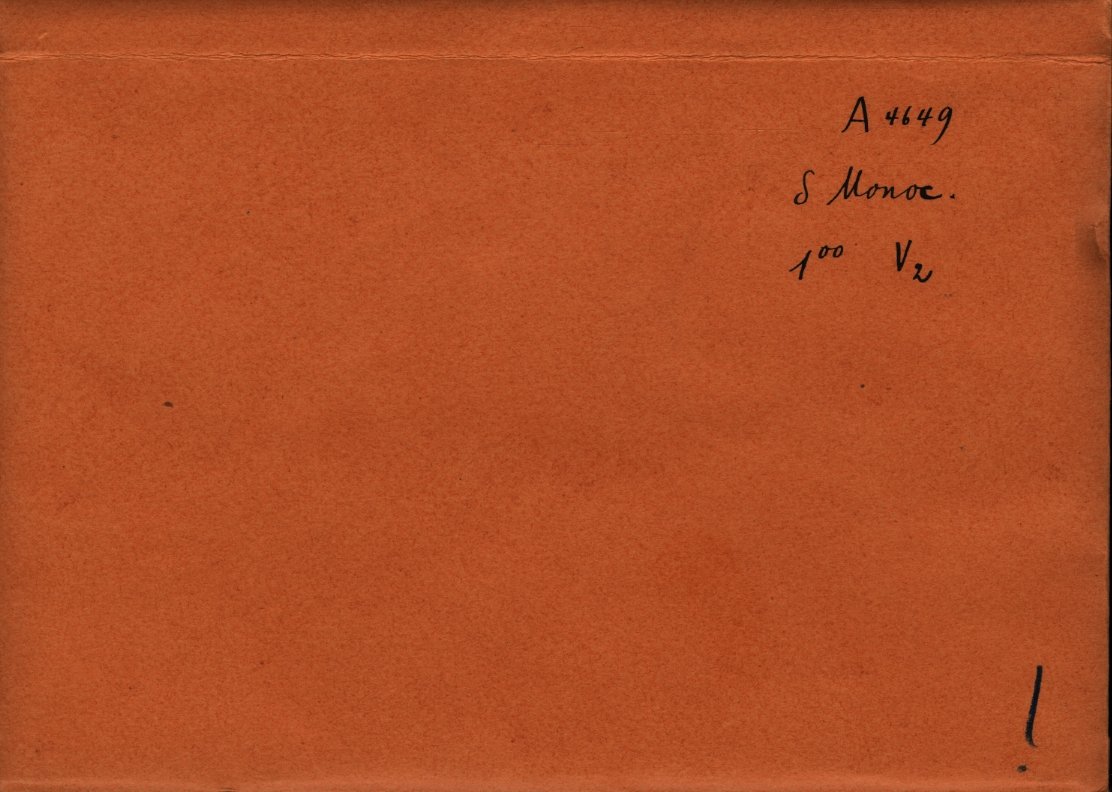 A 4649
δ Monoc.
1⁰⁰ V₂
!